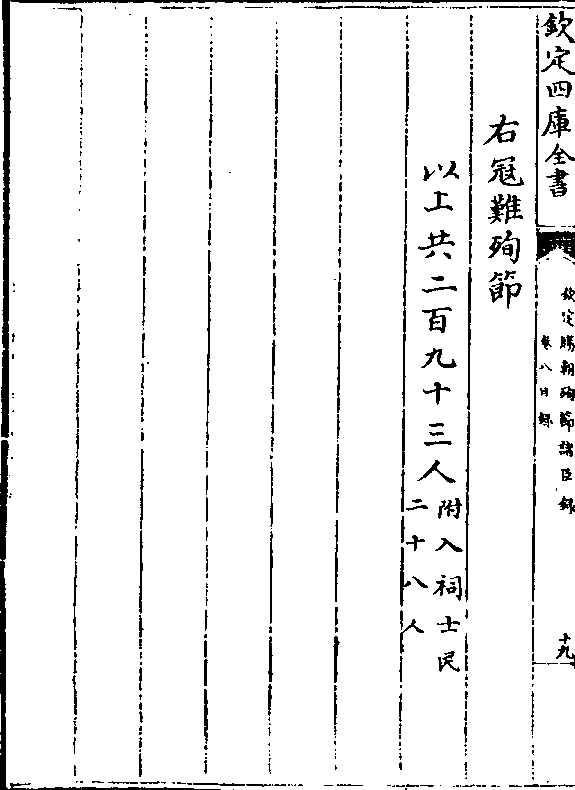 欽定四庫全書
欽定勝朝殉節諸臣錄
卷八目録
十九
右冦難殉節
以上共二百九十三人
附入祠士民
二十八人